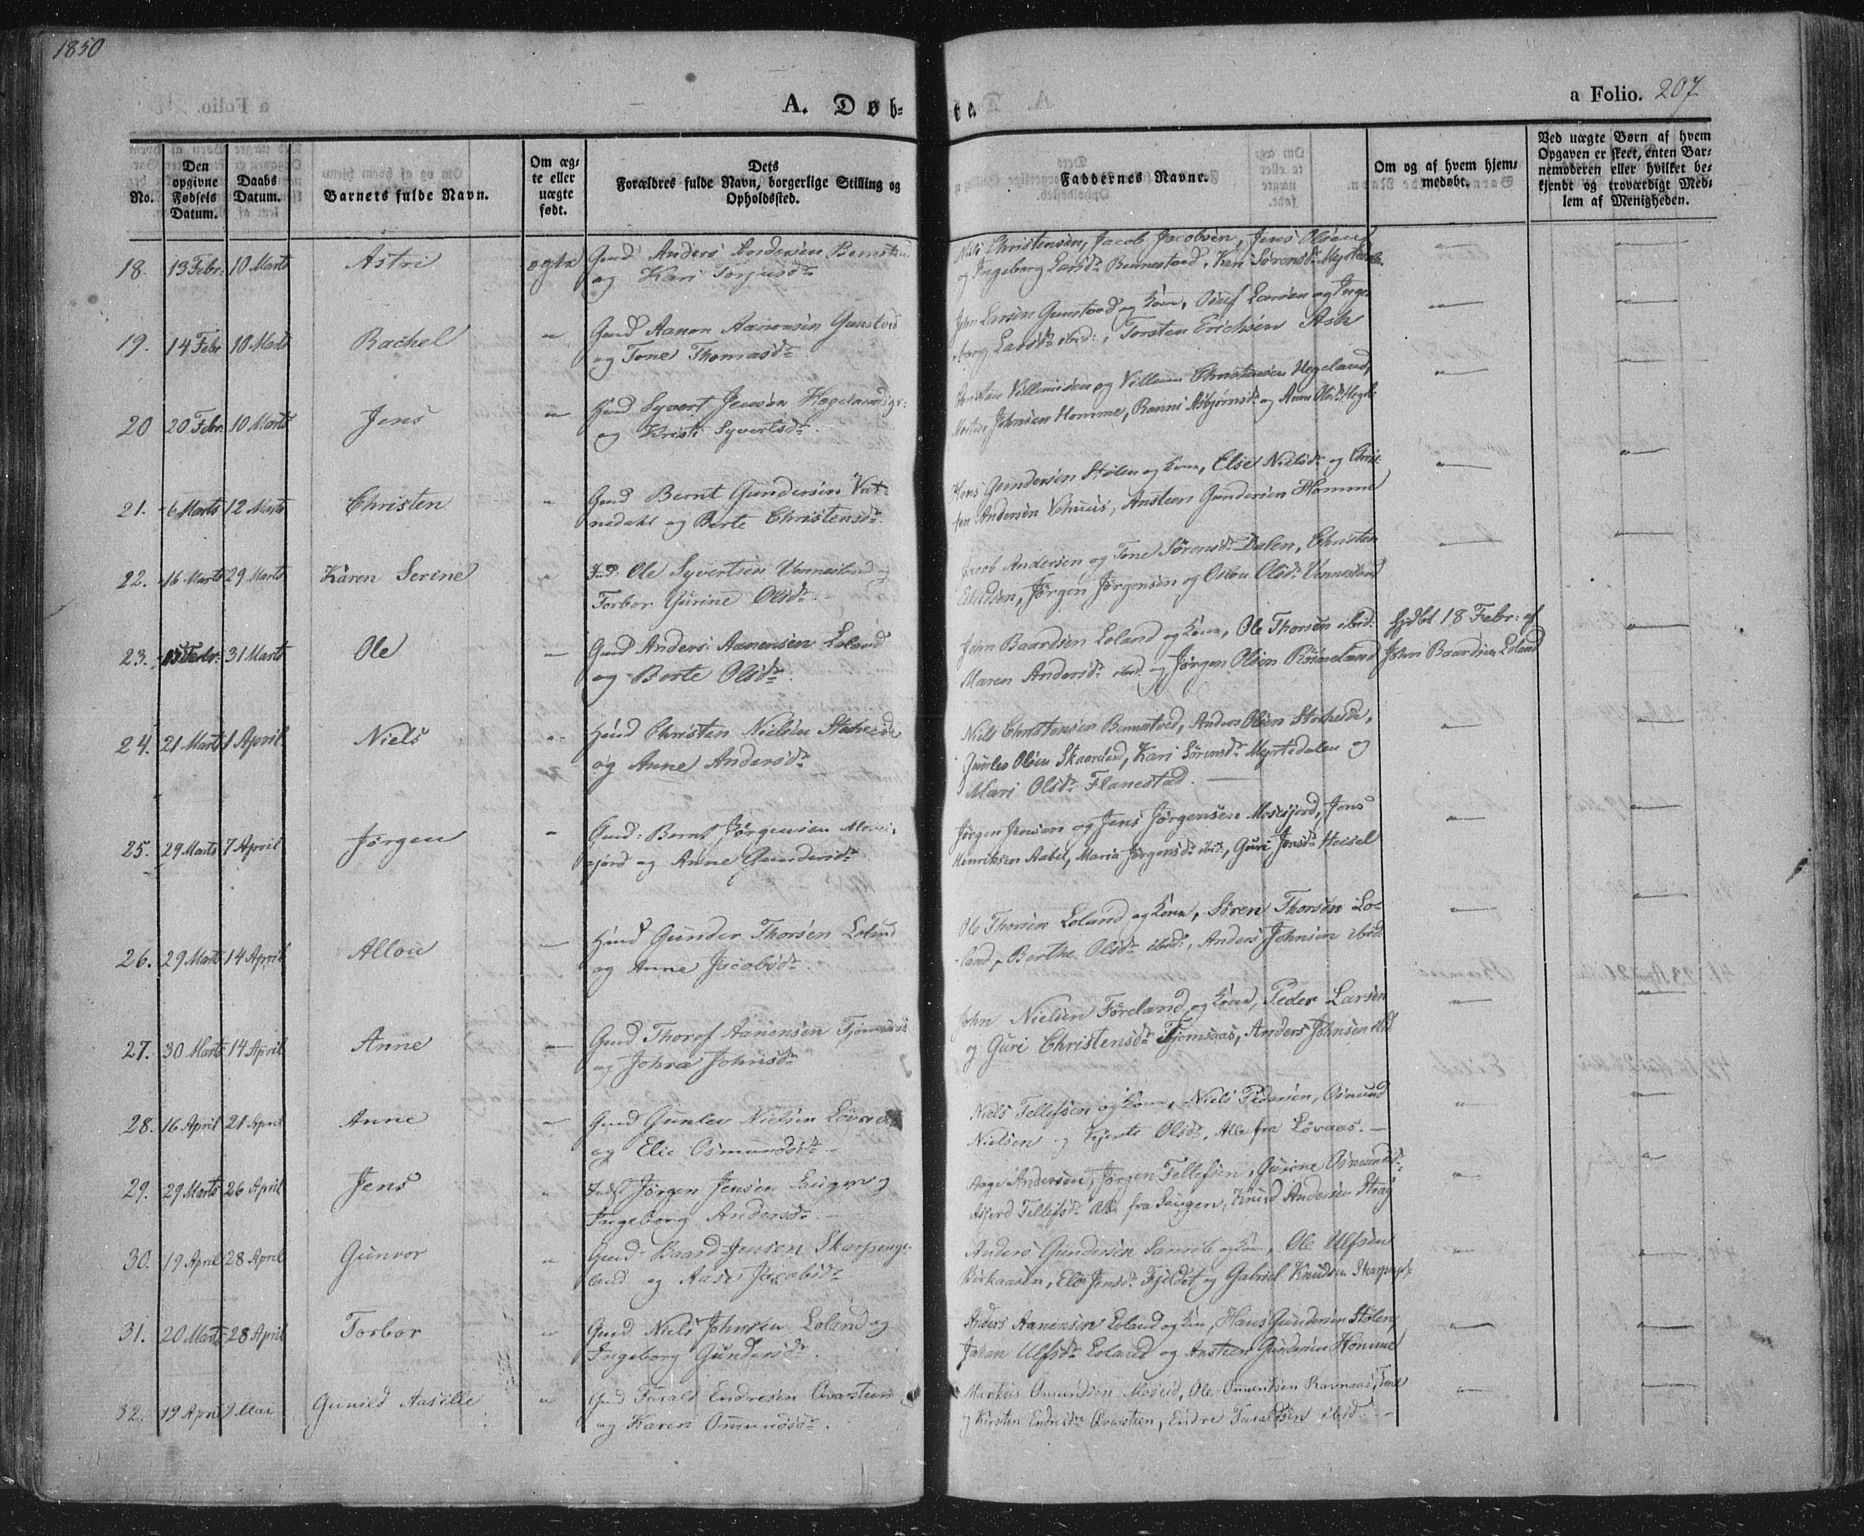 1850
A. Døb-
te.
a Folio. 207
No.
Den opgivne Fødsels Datum.
Daabs Datum.
Barnets fulde Navn.
Om ægte eller uægte født.
Dets Forældres fulde Navn, borgerlige Stilling og Opholdssted.
Faddernes Navne.
Om og af hvem hjemmedøbt.
Ved uægte Børn af hvem Opgaven er skeet, enten Barnemoderen eller hvilket bekjendt og troværdigt Medlem af Menigheden.
18. 13 Febr. 10 Marts Astri ægte Gmd Anders
og Kari Torjusdr
Niels Christensen, Jacob Jacobsen, Jens Olsen
og Ingeborg Larsdr Bennestved, Kari Sørensdr
19. 14 Febr 10 Marts Rachel " Gmd Aanon Aanonsen Gunstved
og Tone Thomasdr
John Larsen Gunstved og Kone, Osuf Larsen og Inge-
borg Larsdr ibid:, Torsten Erichsen Ask
20 20 Febr. 10 Marts Jens " Hmd Syvert Jensen
og Kristi Syvertsdr.
Villumsen og Villum Christensen Hegeland,
Johnsen Homme, Ranni Asbjørnsdr og Anne Olsdr
21. 6 Marts 12 Marts Christen " Gmd Bernt Gundersen Vat-
nedahl og Berte Christensdr.
Hans Gundersen Stølen og Kone, Else Nielsdr og Chris-
ten Andersen Vehuus, Ansteen Gundersen Homme
22. 16 Marts 29 Marts Karen Serine " Ole Syvertsen Vennestved og
Torbor Gurine Olsdr.
Jacob Andersen og Tone Sørensdr Dalen, Christen
Jørgen Jørgensen og Olsdr Vennestved
23. 15 Febr. 31 Marts Ole " Gmd Anders Aanensen Loland
og Berte Olsdr.
John Baardsen Loland og Kone, Ole Thorsen ibid.
Maren Andersdr ibid. og Jørgen Olsen
hjdbt 18 Febr. af
John Baardsen Loland
24. 21 Marts 1 April Niels " Hmd Christen Nielsen
og Anne Andersdr
Niels Christensen Bennestved, Anders Olsen
Gunlev Olsen Skaarland, Kari Sørensdr Myrtedalen og
Mari Olsdr Flanestad.
25. 29 Marts 7 April Jørgen " Gmd: Bernt Jørgensen Mosei-
fjord og Anne Gundersdr
Jørgen Jensen og Jens Jørgensen Moseifjord, Jens
Henriksen Aabel, Maria Jørgensdr ibid:, Guri Jensdr Heisel
26. 29 Marts 14 April Allou " Hmd Gunder Thorsen Loland
og Anne Jacobsdr.
Ole Thorsen Loland og Kone, Søren Thorsen Lo-
land, Berthe Olsdr ibid:, Anders Johnsen ibid
27. 30 Marts 14 April Anne " Gmd Thorof Aanensen
og Johra Johnsdr
John Nielsen Føreland og Kone, Peder Larsen
og Guri Christensdr Fjomsaas, Anders Johnsen ibid
28. 16 April 21 April Anne " Gmd Gunlev Nielsen Løvaas
og Elie Osmundsdr
Niels Tellefsen og Kone, Niels Pedersen, Osmund
Nielsen og Olsdr, Alle fra Løvaas.
29. 29 Marts 26 April Jens " Indst Jørgen Jensen Laugen og
Ingeborg Andersdr.
Aage Andersen, Jørgen Tellefsen, Gurine Osmundsdr
Asperd Tellefsdr Alle fra Laugen, Knud Andersen Straj
30. 19 April 28 April Gunvor " Gmd. Baard Jensen Skarpenge-
land og Aase Jacobsdr
Anders Gundersen og Kone, Ole Ulfsen
Birkaasen, Eli Jensdr Fjeldet og Gabriel Knudsen
31. 20 Marts 28 April Torbor " Gmd Niels Johnsen Loland og
Ingeborg Gundersdr.
Anders Aanensen Loland og Kone, Hans Gundersen Stølen,
Johan Ulfsdr Loland og Ansteen Gundersen Homme
32. 19 April 9 Mai Gunild Aasille " Gmd Tarald Endresen
og Karen Omundsdr.
Markus Omundsen Moseid, Ole Omundsen Ravnaas,
og Kirsten Endresdr, Endre Taraldsen ibid.